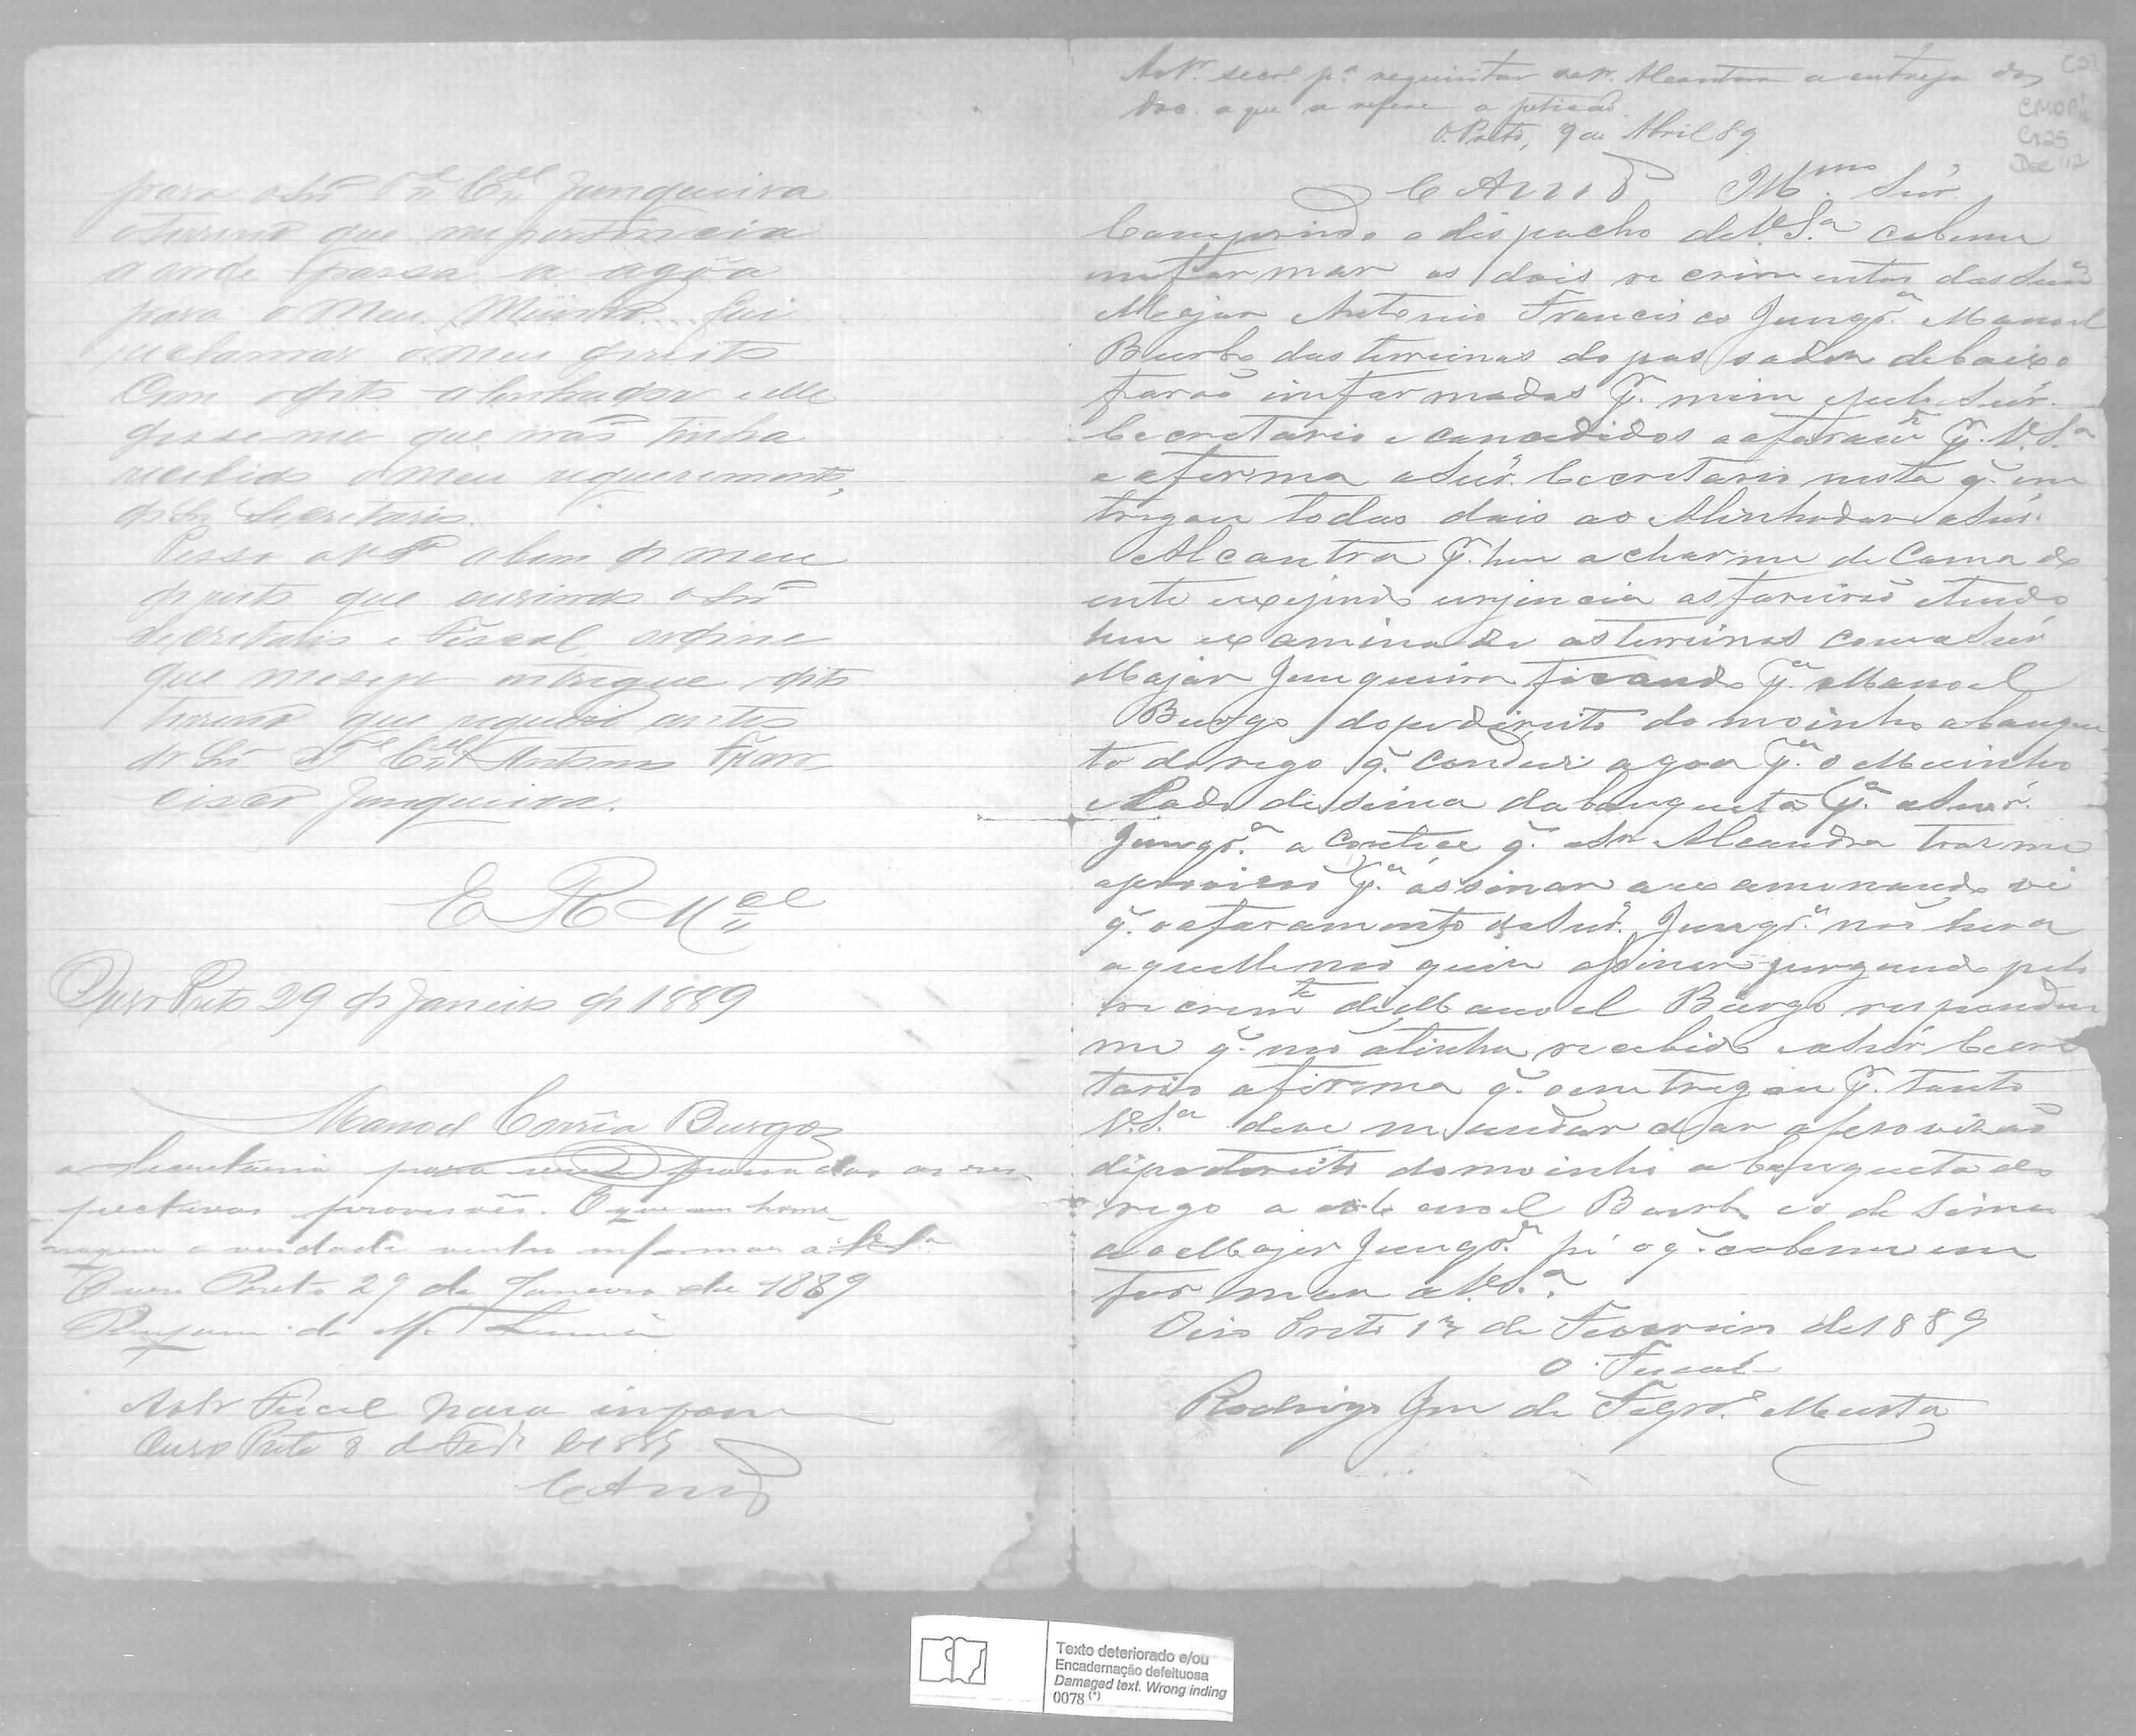 para o Snr Te Cel Junqueira
o terreno que me pertencia
a onde passa a agõa
para o Meu Muinho fui
reclamar o meu direito
Com o dito alinhador e elle
disse-me que não tinha
recebido o meu requerimento,
do Sr Secretario.
Pesso a VSa a bem do meu
direito que ouvindo o Snr
Secretario e Fiscal, ordine
que me seja entregue o dito
terreno que requeri antes
do Sr Te Cel Antonio Fran
cisco Junqueira.
E R Mce
Ouro Preto 29 de Janeiro de 1889
Manoel Corrêa Burgos
a Secretaria para serem passadas as res-
pectivas provisões. O que em home-
nagem a verdade venho informar a V.Sa
Ouro Preto 29 de Janeiro de 1889
de M.
Ao Sr Fiscal para informar
Ouro Preto 8 de Fevro de 1889
Ao Sr. secro pa requisitar do Sr. Alcantara a entrega dos
doc. a que se refere a petição.
O. Preto, 9 de Abril 89
C21
CMOP
Cx25
Doc 12
Illmo Snr
Comprindo o dispacho de V.Sa cabeme
emformar os dois recrimentos dos Snrs
Major Antonio Francisco Jungra. Manoel
Burb dos terreinos do passador debaixo
farão imformados p. mim e pelo Snr.
Cecretario e concedidos o aforamto p. V.Sa
e aferma o Snr. Cecretario nesta q. em
tregou todos dois ao Alinhador o Snr.
Alcantra p. heu acharme de Cama do
ente e exejindo urjencia as
heu examinado os terreinos com o Snr
Major Junqueira ficando pa. Manoel
Burgo do pedireito do moinho a banque
ta do rego q. conduz agoa pa. o Muinho
e Lado de sima da banqueta pa. o Snr.
Jungra. a contece q. o Snr Alcandra trasme
a provizão pa. assinar a examinando vi
q. o aforamento do Snr. Jungra. não hera
aquelle não quiz assinar pergando pelo
recrimto de Manoel Burgo respondeu
me q. não o tinha recebido e o Snr Cecre
tario afirma q. o emtregou p. tanto
V.Sa deve mandar dar a provizão
dipedireito do moinho a banqueta do
rego a Manoel Burb e o de sima
ao Major Jungra. hé o q. cabeme em
formar a V.Sa.
Oiro Preto 13 de Fevereiro de 1889
O Fiscal
Rodrigo Jose de Figrdo Murta
Texto deteriorado e/ou
Encadernação defeituosa
Damaged text. Wrong inding
0078 (*)